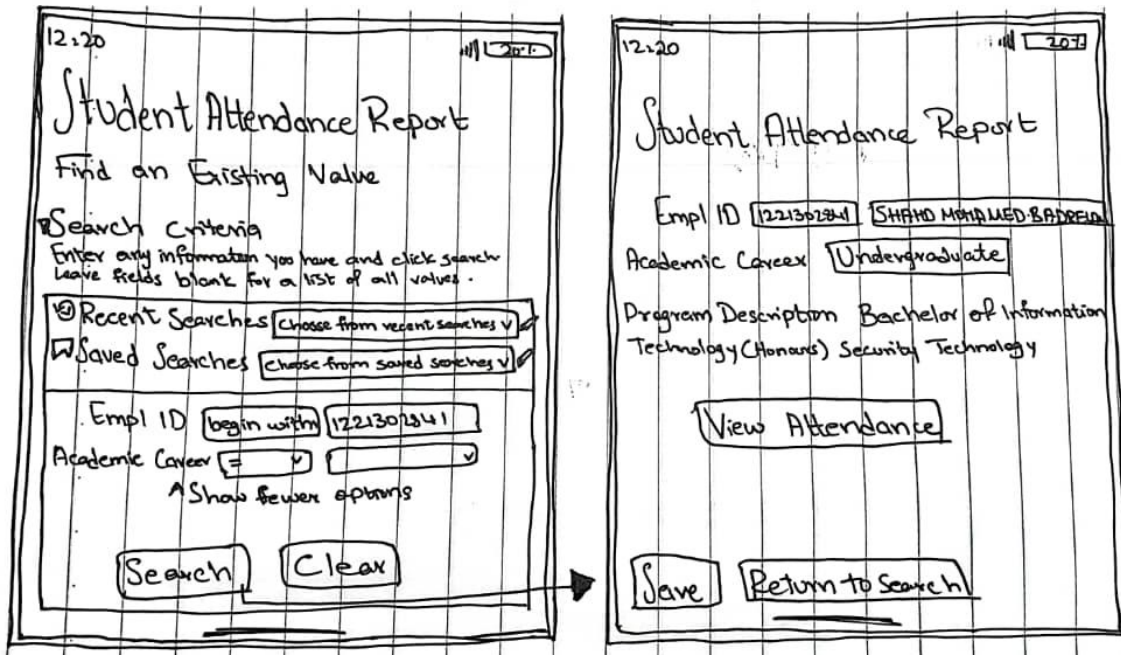 12:20
20%
Student Attendance Report
Find an Existing Value
Search Criteria
Enter any information you have and click search
Leave fields blank for a list of all values.
Recent Searches Choose from recent searches
Saved Searches Choose from saved searches
Empl ID begin with 1221302841
Academic Career =
^ Show fewer options
Search Clear
12:20
20%
Student Attendance Report
Empl ID 1221302841 SHAHD MOHAMED BADRELD
Academic Career Undergraduate
Program Description Bachelor of Information
Technology (Honours) Security Technology
View Attendance
Save Return to Search